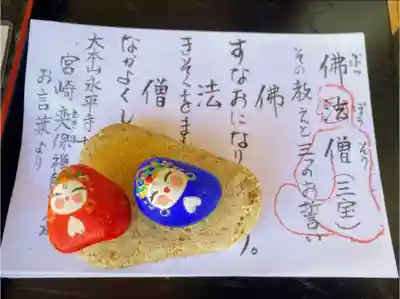 佛法僧(三宝)
ぶっ ぽう そう
その教えと三つのお誓い
佛
すなおになり
法
きそくをま
僧
なかよくし
大本山永平寺
宮崎奕保禅
お言葉より